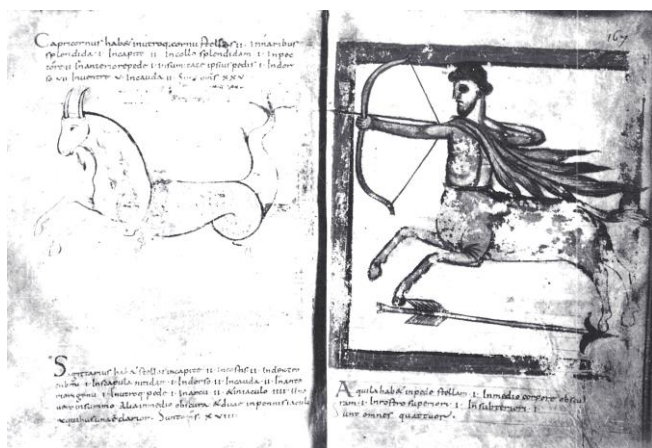 Capricornus hab& inutroq. cornu stellas II. Innaribus
splendida I. Incapite II. Incollo splendidam I. Inpec
tore II. Inanteriore pede I. Insummitate ipsius pedis I. Indor
so VII Inventre V. Incauda II. Sunt omnis XXV
Sagittarius hab& stellas incapite II. II. Indextro
I. Inscapula I. Indorso II. Incauda II. Inante
riori genu I. Inutroq. pede I. Inarcu II. IIII
inmedio obscura & duae inpennis
clarior. Sunt omnis XVIII
167
Aquila hab& inpede stellam I. Inmedio corpore obscu
ram I. Inrostro superiori I. Insubteriori I
Sunt omnes quattuor.